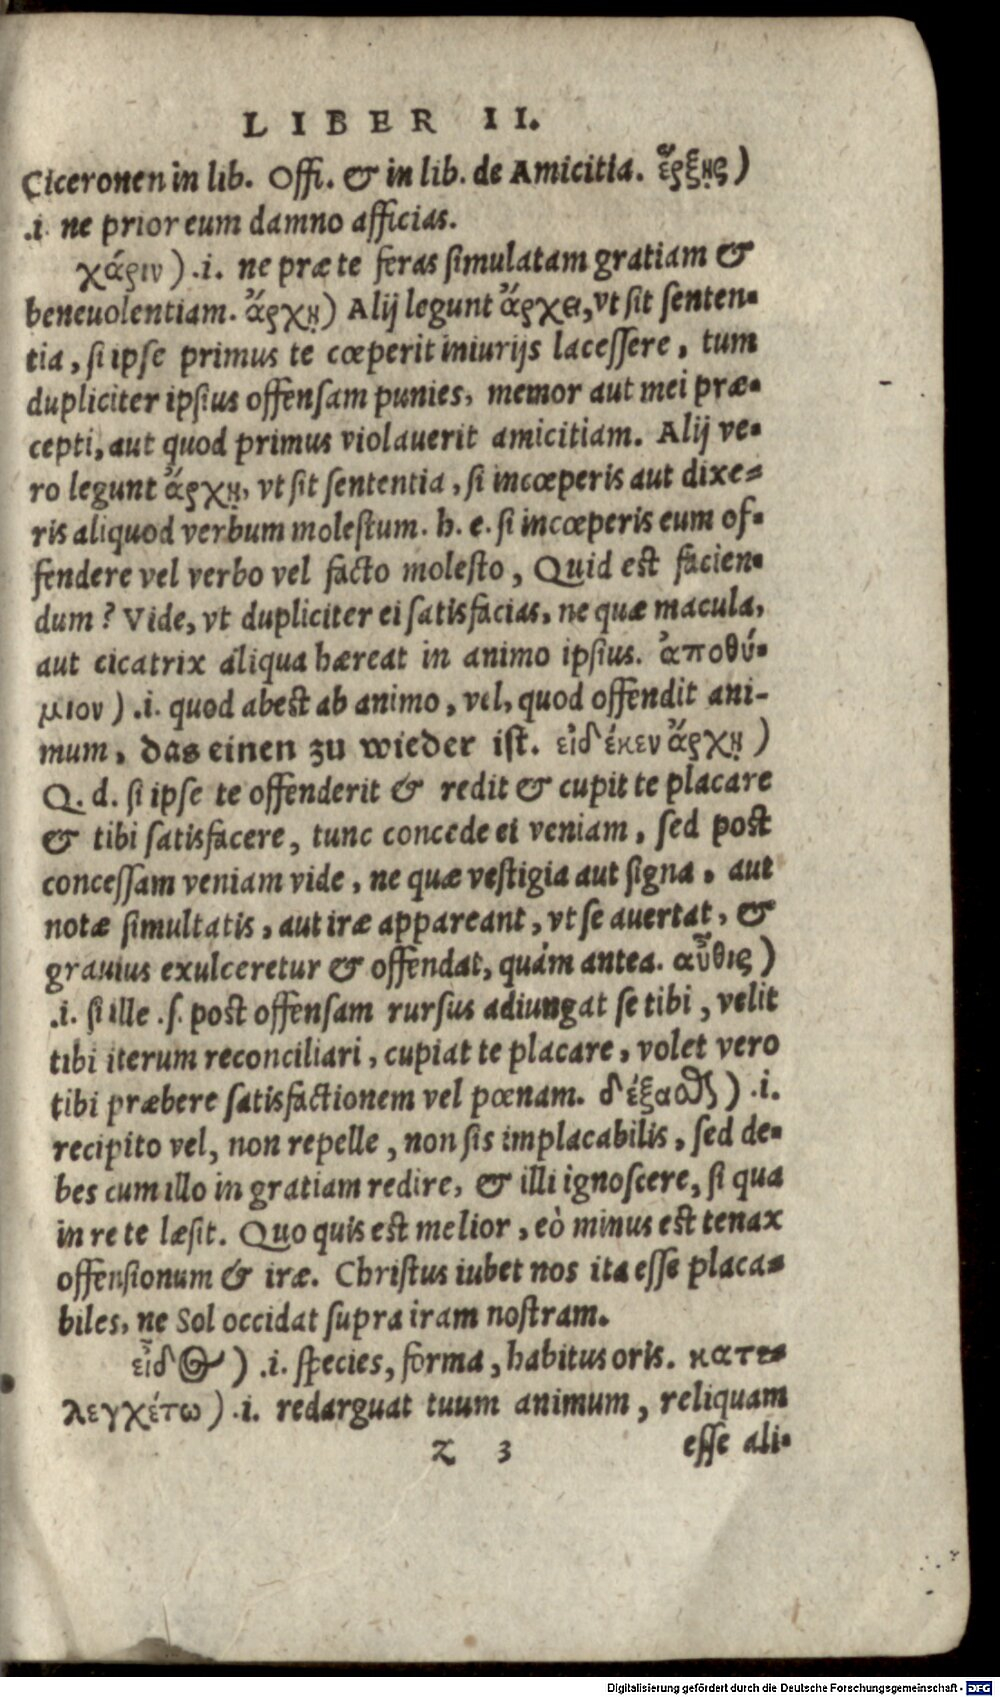 LIBER II.
Ciceronen in lib. Offi. & in lib. de Amicitia. ἔρξῃς)
.i. ne prior eum damno afficias.
χάριν) .i. ne præ te feras simulatam gratiam &
beneuolentiam. ἄρχῃ) Alij legunt ἄρχει, vt sit senten-
tia, si ipse primus te cœperit iniurijs lacessere, tum
dupliciter ipsius offensam punies, memor aut mei præ-
cepti, aut quod primus violauerit amicitiam. Alij ve-
ro legunt ἄρχῃ, vt sit sententia, si incœperis aut dixe-
ris aliquod verbum molestum. h. e. si incœperis eum of-
fendere vel verbo vel facto molesto, Quid est facien-
dum? Vide, vt dupliciter ei satisfacias, ne quæ macula,
aut cicatrix aliqua hæreat in animo ipsius. ἀποθύ-
μιον) .i. quod abest ab animo, vel, quod offendit ani-
mum, das einen zu wieder ist. εἰδέκεν ἄρχῃ)
Q. d. si ipse te offenderit & redit & cupit te placare
& tibi satisfacere, tunc concede ei veniam, sed post
concessam veniam vide, ne quæ vestigia aut signa, aut
notæ simultatis, aut iræ appareant, vt se auertat, &
grauius exulceretur & offendat, quám antea. αὖθις)
.i. si ille .s. post offensam rursus adiungat se tibi, velit
tibi iterum reconciliari, cupiat te placare, volet vero
tibi præbere satisfactionem vel pœnam. δέξαϑζ) .i.
recipito vel, non repelle, non sis implacabilis, sed de-
bes cum illo in gratiam redire, & illi ignoscere, si qua
in re te læsit. Quo quis est melior, eò minus est tenax
offensionum & iræ. Christus iubet nos ita esse placa-
biles, ne Sol occidat supra iram nostram.
εἶδος) .i. species, forma, habitus oris. κατε-
λεγχέτω) .i. redarguat tuum animum, reliquam
Z 3 esse ali-
Digitalisierung gefördert durch die Deutsche Forschungsgemeinschaft - DFG